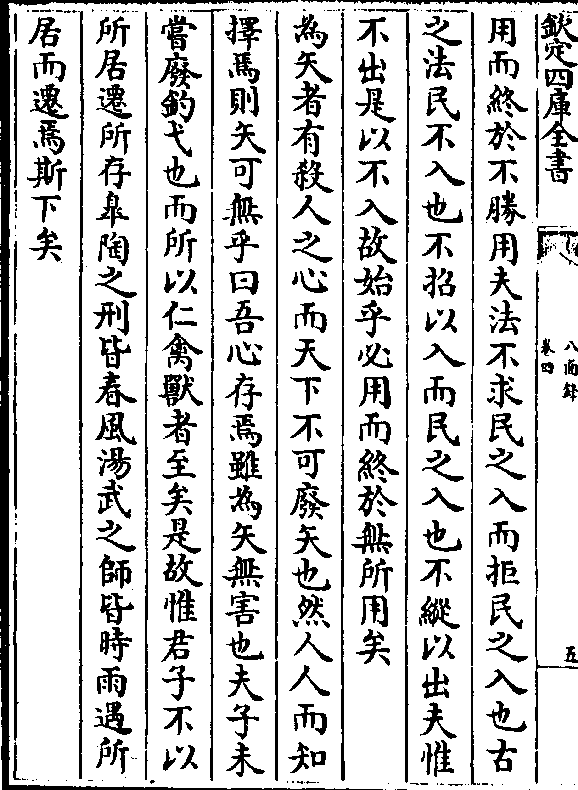 欽定四庫全書
八面鋒
卷四
五
用而終於不勝用夫法不求民之入而拒民之入也古
之法民不入也不招以入而民之入也不縱以出夫惟
不出是以不入故始乎必用而終於無所用矣
為矢者有殺人之心而天下不可廢矢也然人人而知
擇焉則矢可無乎曰吾心存焉雖為矢無害也夫子未
嘗廢釣弋也而所以仁禽獸者至矣是故惟君子不以
所居遷所存臯陶之刑皆春風湯武之師皆時雨遇所
居而遷焉斯下矣